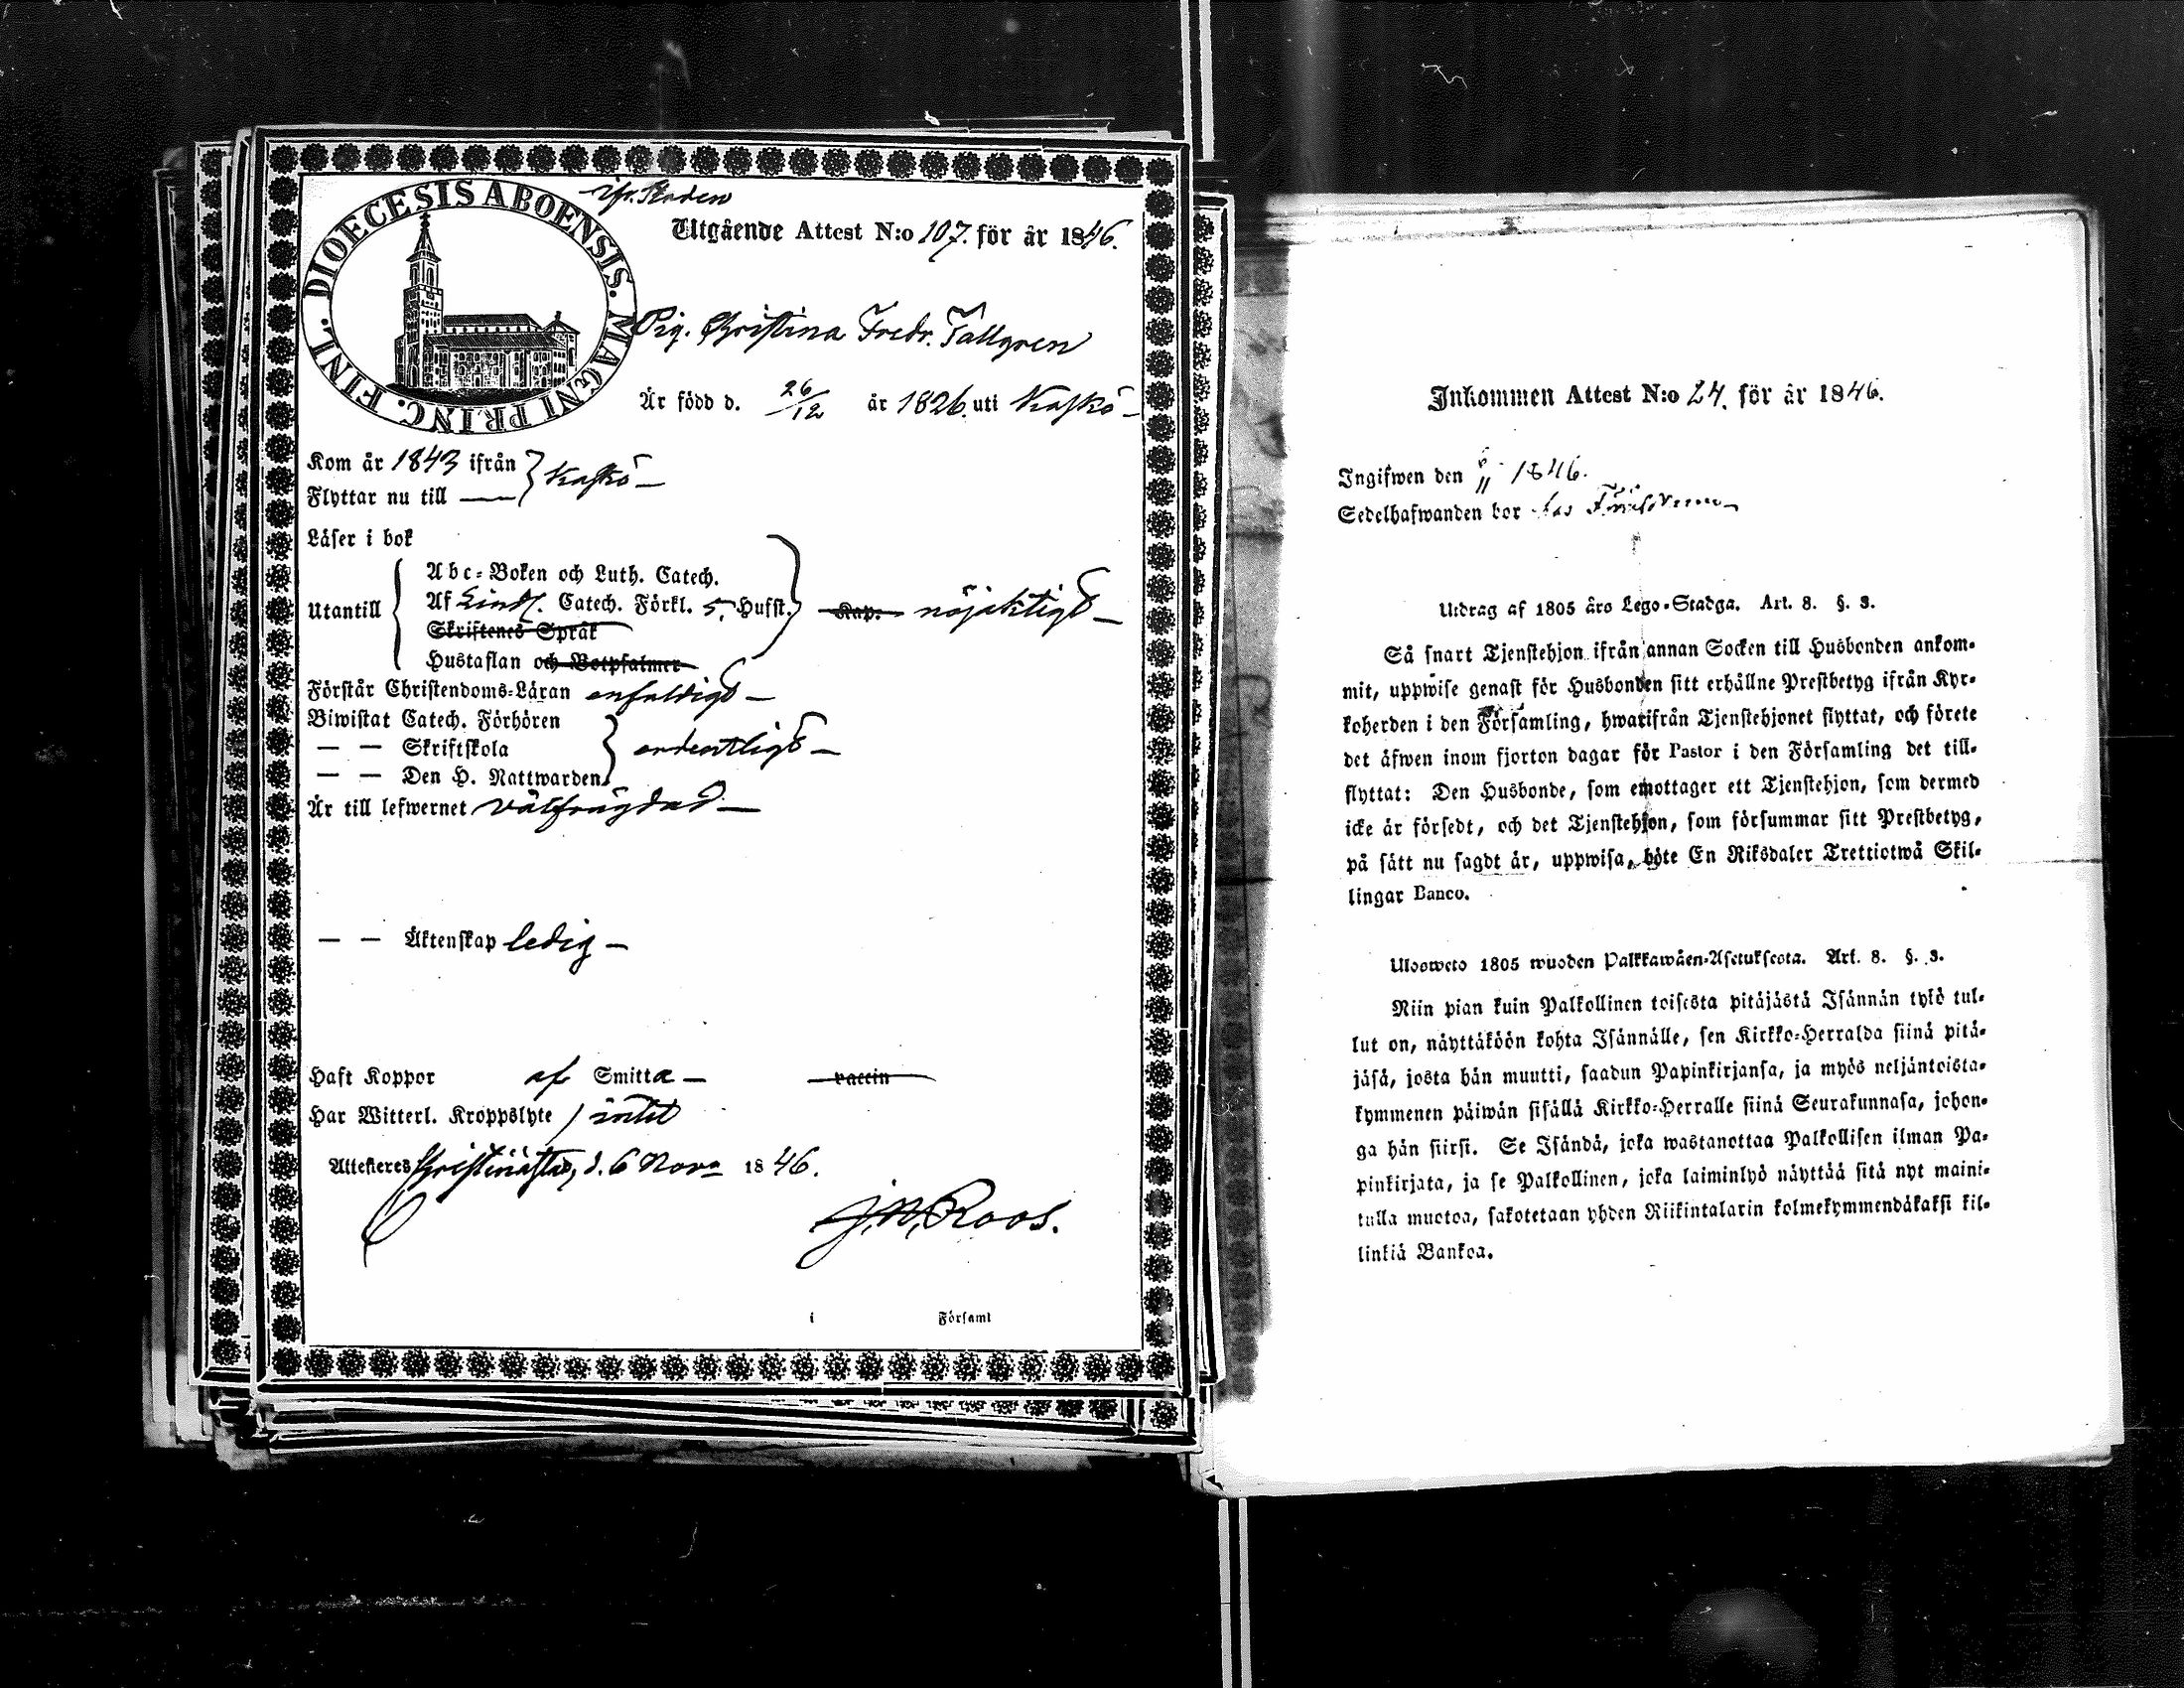 DIOECESIS ABOENSIS. MAGNI PRINC. FINL.
Utgående Attest N:o 107. för år 1846.
Pig. Christina Fredr. Tallgren
Är född d. 26/12 år 1826 uti Kaskö
Kom år 1843 ifrån } Kaskö
Flyttar nu till
Läser i bok
Abc-Boken och Luth. Catech.
Utantill { Af Lindq. Catech. Förkl. 5. Husst. } Kap. nöjaktigt
Skriftenes Språk
Hustaflan och Botpsalmer
Förstår Christendoms-Läran enfaldigt
Biwistat Catech. Förhören
— — Skriftskola } ordentligt
— — Den H. Nattwarden
Är till lefwernet välfrägdad
— — Äktenskap ledig
Haft Koppor af Smitta vaccin
Har Witterl. Kroppslyte intet
Attesteres Christinestad, d. 6 Nov. 1846.
J. M. Roos.
i Församl
Inkommen Attest N:o 24. för år 1846.
Ingifwen den 1846.
Sedelhafwanden bor
Utdrag af 1805 års Lego-Stadga. Art. 8. §. 3.
Så snart Tjenstehjon ifrån annan Socken till Husbonden ankom-
mit, uppwise genast för Husbonden sitt erhållne Prestbetyg ifrån Kyr-
koherden i den Församling, hwarifrån Tjenstehjonet flyttat, och förete
det äfwen inom fjorton dagar för Pastor i den Församling det till-
flyttat: Den Husbonde, som emottager ett Tjenstehjon, som dermed
icke är försedt, och det Tjenstehjon, som försummar sitt Prestbetyg,
på sätt nu sagdt är, uppwisa, böte En Riksdaler Trettiotwå Skil-
lingar Banco.
Ulosweto 1805 wuoden Palkkawäen-Asetuksesta. Art. 8. §. 3.
Niin pian kuin Palkollinen toisesta pitäjästä Isännän tykö tul-
lut on, näyttäköön kohta Isännälle, sen Kirkko-Herralda siinä pitä-
jäsä, josta hän muutti, saadun Papinkirjansa, ja myös neljäntoista-
kymmenen päiwän sisällä Kirkko-Herralle siinä Seurakunnasa, johon-
ga hän siirsi. Se Isändä, joka wastanottaa Palkollisen ilman Pa-
pinkirjata, ja se Palkollinen, joka laiminlyö näyttää sitä nyt maini-
tulla muotoa, sakotetaan yhden Riikintalarin kolmekymmendäkaksi kil-
linkiä Bankoa.